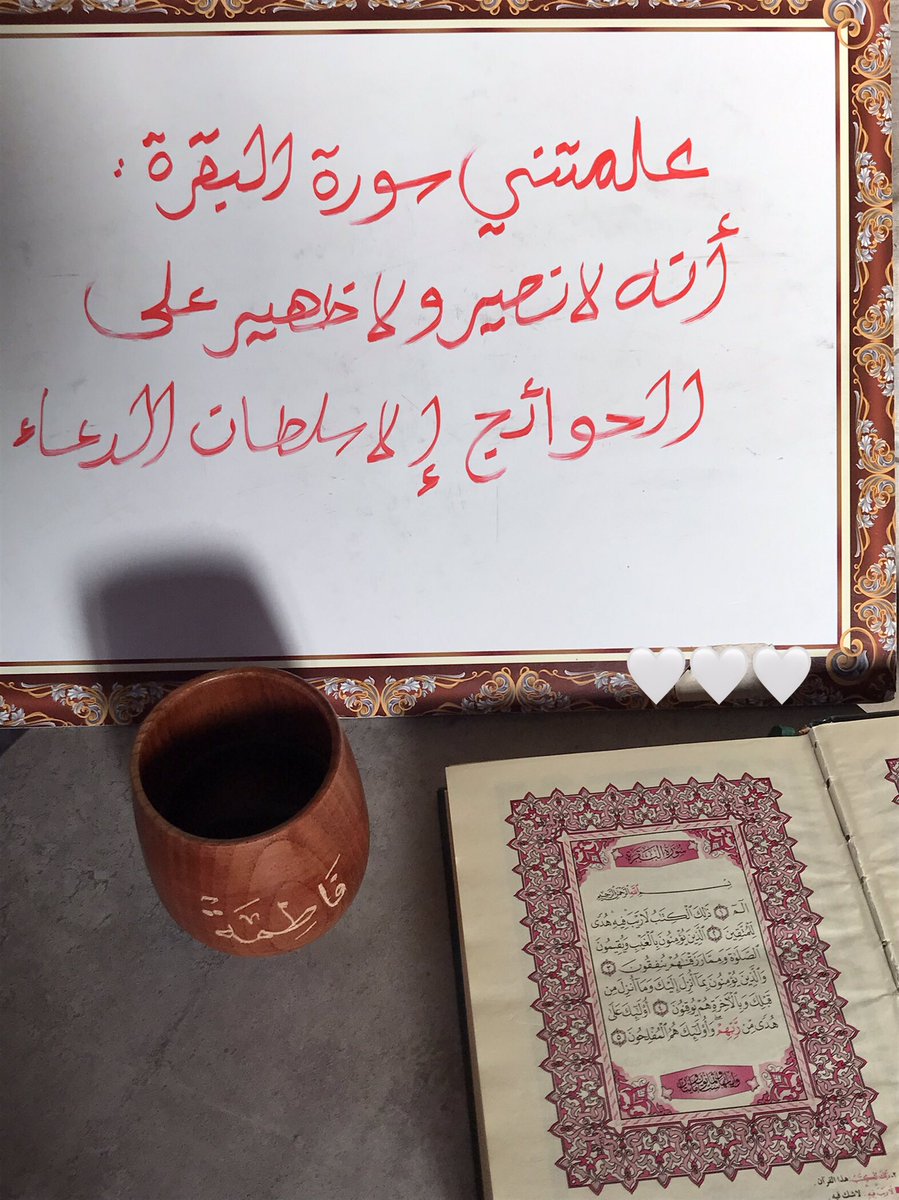 علمتني سورة البقرة :
أنه لا نصير ولا ظهير على
الحوائج إلا سلطان الدعاء
فَاطِمَة
سورة البقرة
بسم الله الرحمن الرحيم
الٓمٓ ١ ذَٰلِكَ ٱلْكِتَٰبُ لَا رَيْبَ فِيهِ هُدًى
لِّلْمُتَّقِينَ ٢ ٱلَّذِينَ يُؤْمِنُونَ بِٱلْغَيْبِ وَيُقِيمُونَ
ٱلصَّلَوٰةَ وَمِمَّا رَزَقْنَٰهُمْ يُنفِقُونَ ٣
وَٱلَّذِينَ يُؤْمِنُونَ بِمَآ أُنزِلَ إِلَيْكَ وَمَآ أُنزِلَ مِن
قَبْلِكَ وَبِٱلْءَاخِرَةِ هُمْ يُوقِنُونَ ٤ أُو۟لَٰٓئِكَ عَلَىٰ
هُدًى مِّن رَّبِّهِمْ وَأُو۟لَٰٓئِكَ هُمُ ٱلْمُفْلِحُونَ ٥
هذا القرآن
لا ريب فيه لا شك فيه